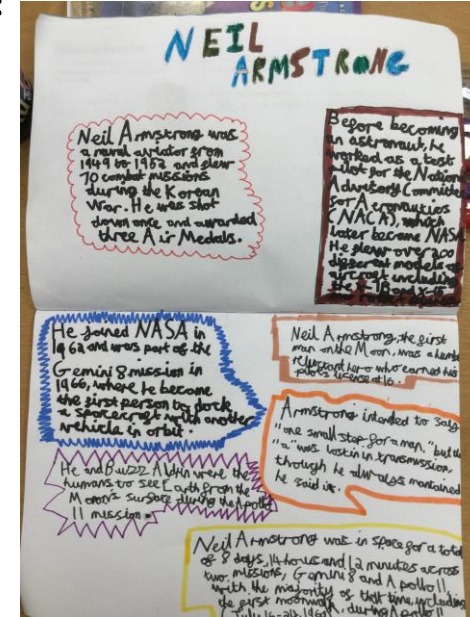 NEIL
ARMSTRONG
Neil Armstrong was
a naval aviator from
1949 to 1952 and flew
70 combat missions
during the Korean
War. He was shot
down once and awarded
three Air Medals.
Before becoming
an astronaut, he
worked as a test
pilot for the Nation
Advisory Committe
for Aeronautics
(NACA), which
later became NASA
He flew over 200
different models of
aircraft including
the X-1B and X-15
He joined NASA in
1962 and was part of the
Gemini 8 mission in
1966, where he became
the first person to dock
a spacecraft with another
vehicle in orbit.
Neil Armstrong, the first
man on the Moon, was a
reluctant hero who earned his
pilot's license at 16.
Armstrong intended to say
"one small step for a man," but the
"a" was lost in transmission,
through he always maintained
he said it.
He and Buzz Aldrin were the
humans to see Earth from the
Moon's surface during the Apollo
11 mission.
Neil Armstrong was in space for a total
of 8 days, 14 hours and 12 minutes across
two missions, Gemini 8 and Apollo 11,
with the majority of that time, including
the first moonwalk, during Apollo 11
(July 16-24, 1969)